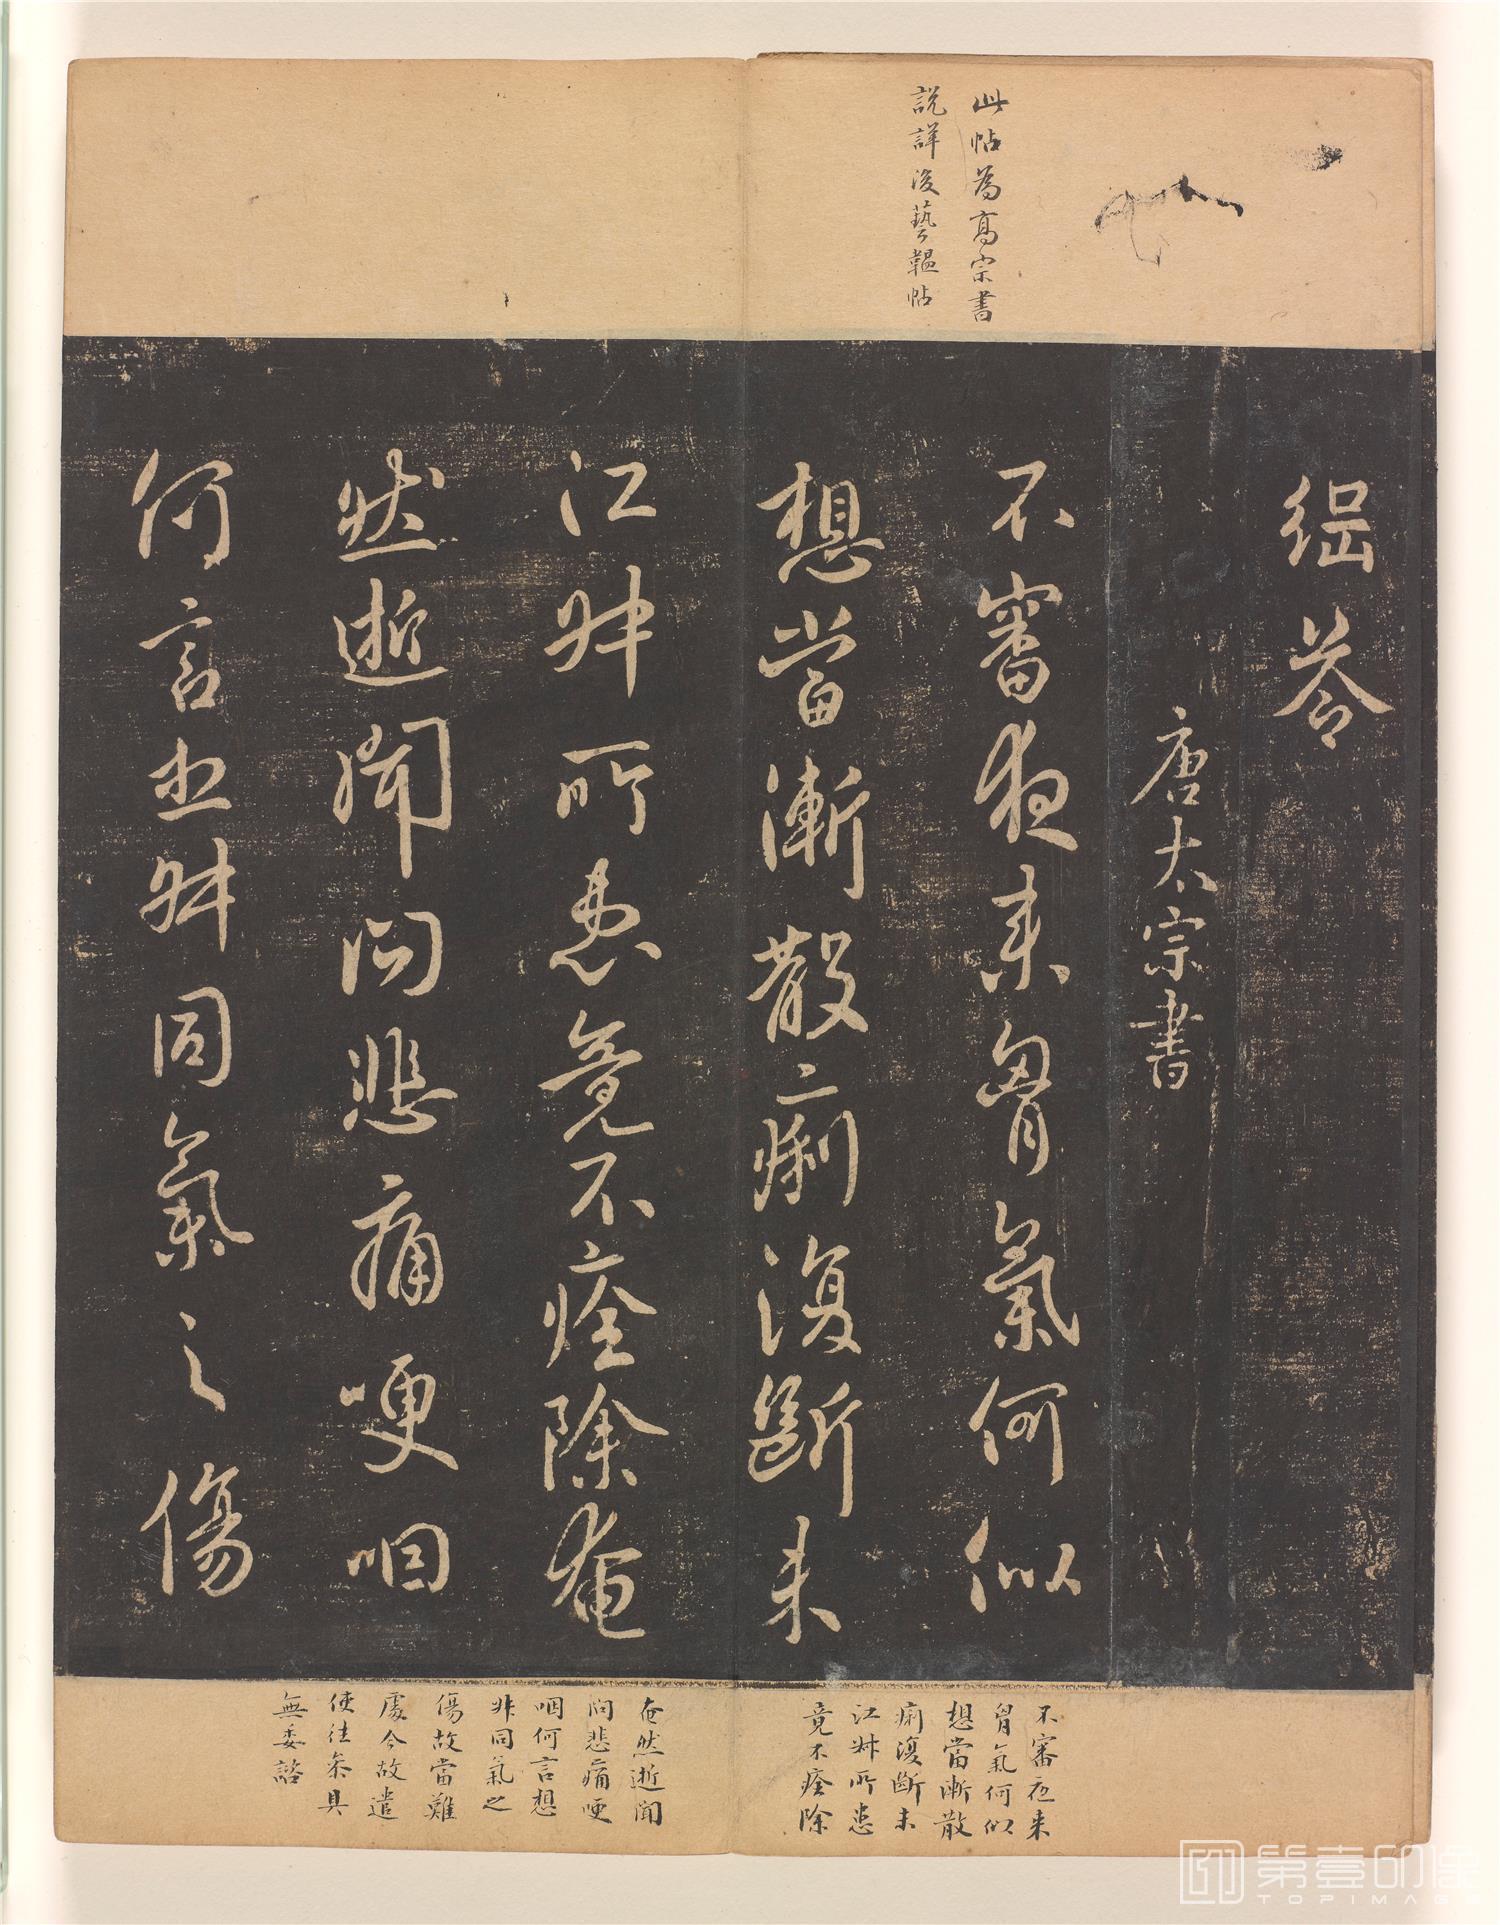 此帖為高宗書
說詳後藝韞帖
唐太宗書
不審夜来胷氣何似
想當漸散痢復斷未
江叔所患竟不痊除奄
然逝聞問悲痛哽咽
何言想叔同氣之傷
不審夜来
胷氣何似
想當漸散
痢復斷未
江叔所患
竟不痊除
奄然逝聞
問悲痛哽
咽何言想
叔同氣之
傷故當難
處今故遣
使往參具
無委諮
第壹印像
TOPIMAGE